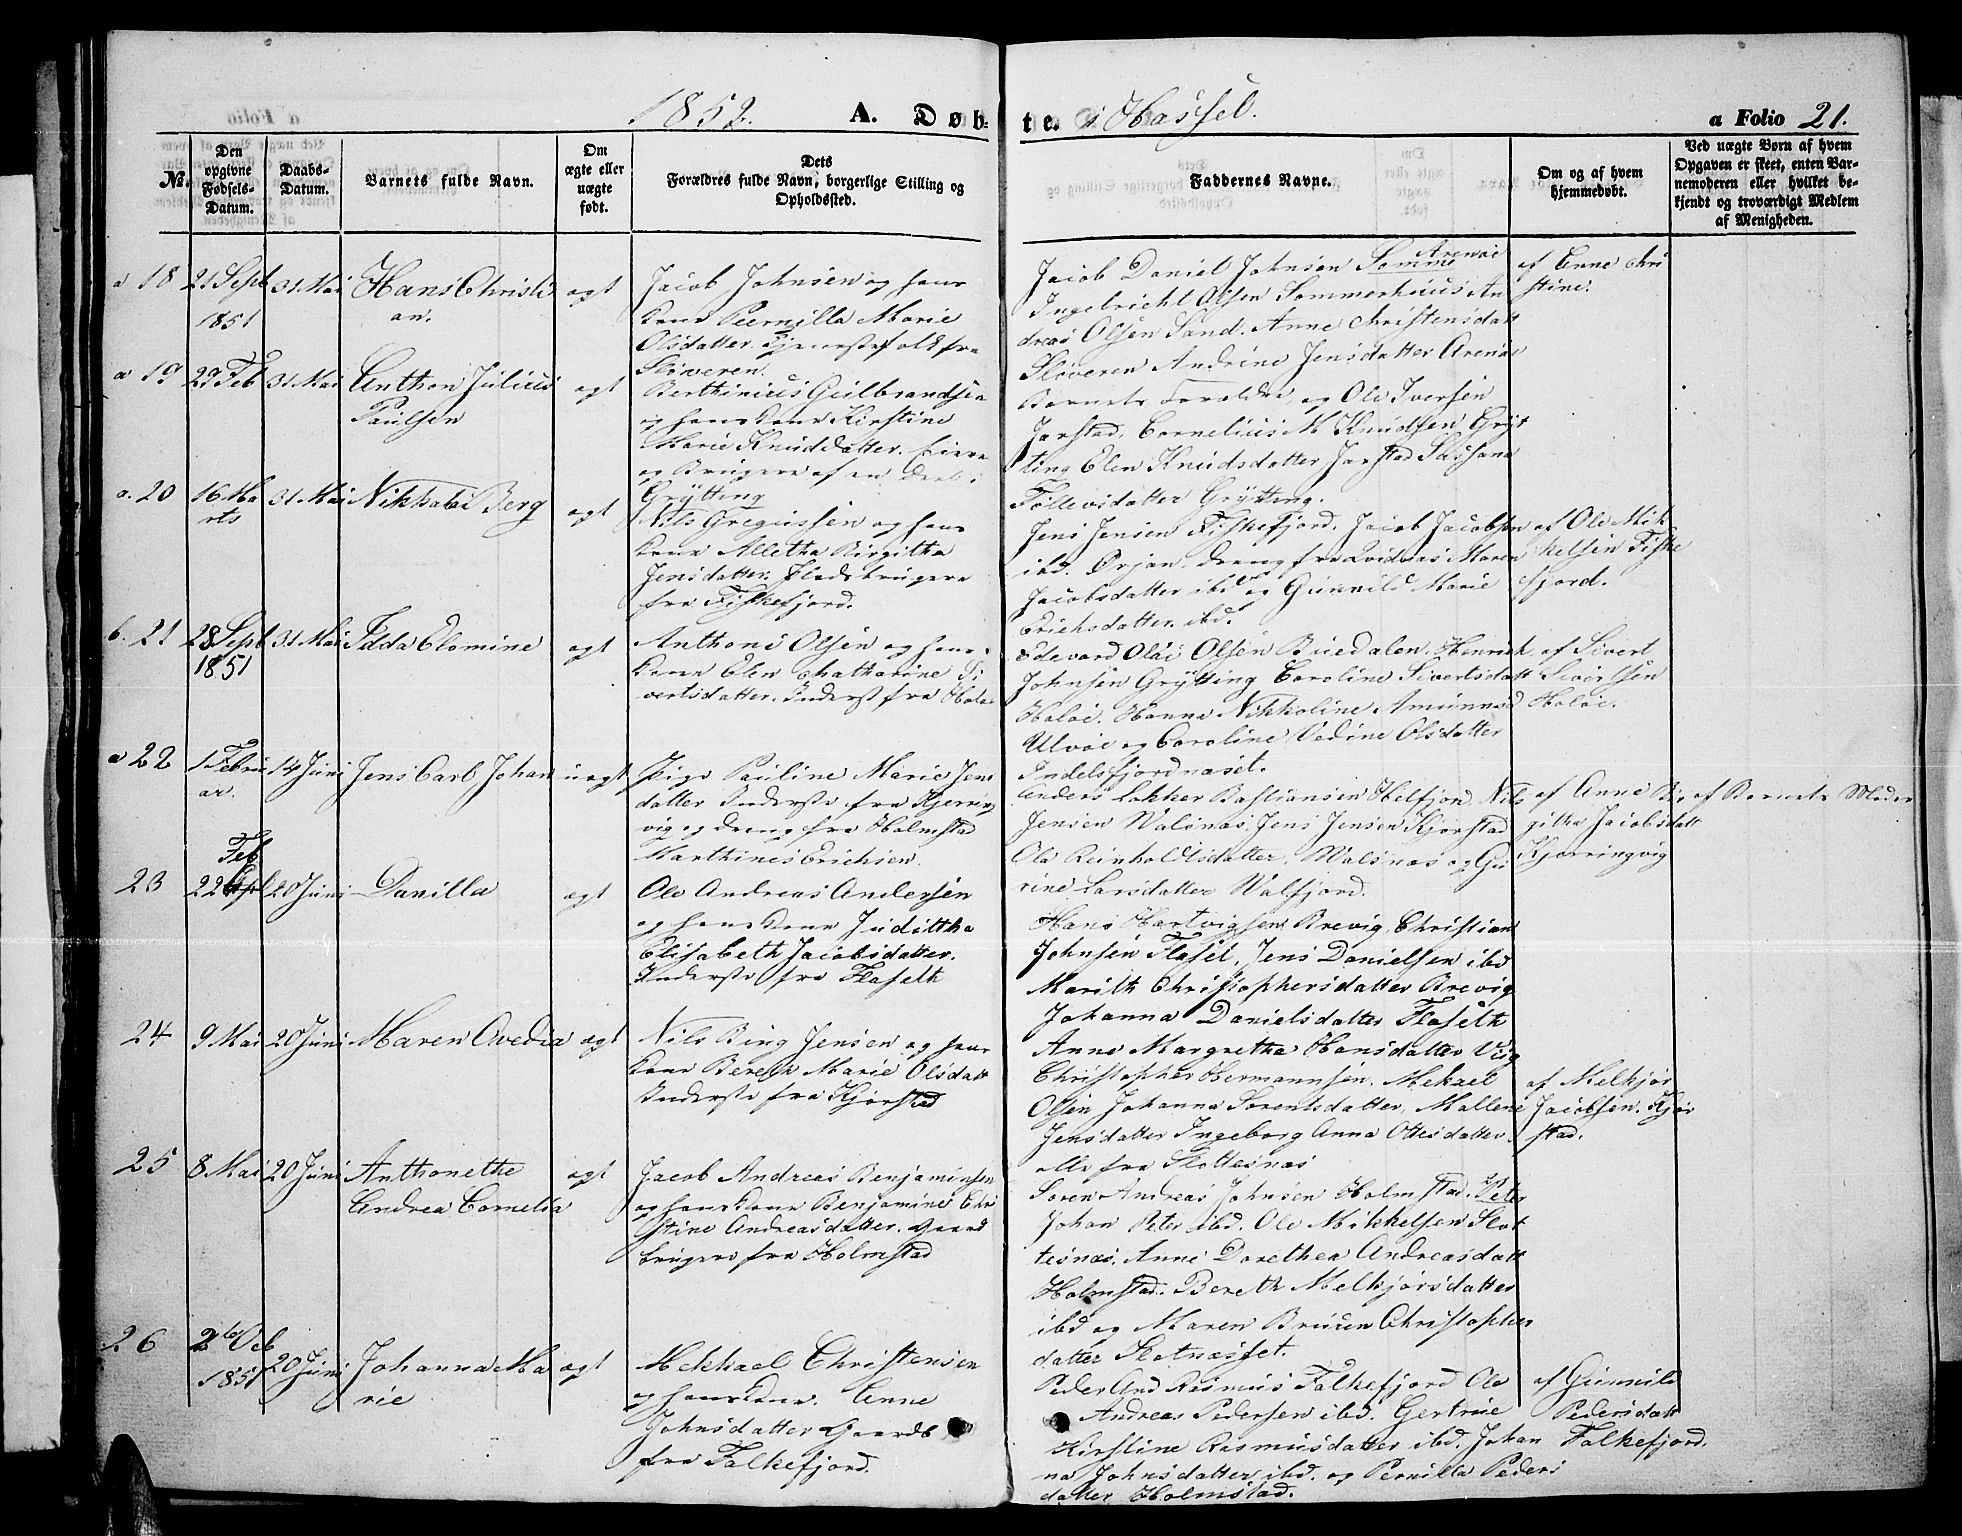 1852. A. Døb-
te. i Hassel.
a Folio 21.
No.
Den
opgivne
Fødsels-
Datum.
Daabs-
Datum.
Barnets fulde Navn.
Om
ægte eller
uægte
født.
Dets
Forældres fulde Navn, borgerlige Stilling og
Opholdssted.
Faddernes Navne.
Om og af hvem
hjemmedøbt.
Ved uægte Børn af hvem
Opgaven er skeet, enten Bar-
nemoderen eller hvilket be-
kjendt og troværdigt Medlem
af Menigheden.
a 18
21 Sept
1851
31 Mai
Hans Christi
an.
ægt
Jacob Johnsen og hans
Kone Pernilla Marie
Olsdatter. Tjenestefolk fra
Sløveren.
Jacob Daniel Johnsen Arenøe
Ingebricht Olsen Sommerhuus An
dreas Olsen Sand. Anne Christensdatt
Sløveren Andrine Jensdatter Arenøe
af Anne Chri
stine.
a 19
29 Feb
31 Mai
Anthon Julius
Paulsen
ægt
Berthinius Gulbrandsen
og hans Kone Kirstine
Marie Knudsdatter. Eiere
og Brugere af en Deel i
Grytting
Barnets Forældre og Ole Iversen
Jarstad, Cornelius M Knudsen Gryt
ting Elen Knudsdatter Jarstad Susana
Tollevsdatter Grytting.
a. 20
16 Ma
rts
31 Mai
Nikkolai Berg
ægt
Nils Gregussen og hans
Kone Alletha Birgitha
Jensdatter. Pladsbrugere
fra Fiskefjord.
Jens Jensen Fiskefjord. Jacob Jacobsen
ibd. Ørjan. dreng fra Qvidnæs Maren
Jacobsdatter ibd og Gunnild Marie
Erichsdatter. ibd.
af Ole Mik
kelsen Fiske
fjord.
b. 21
28 Sept
1851
31 Mai
Idda Elomine
ægt
Anthoni Olsen og hans
Kone Elen Chatharine Si
vertsdatter. Inderst fra Haløe
Edevard Olai Olsen Buedalen. Henrich
Johnsen Grytting Caroline Sivertsdatt
Haløe. Hanna Nikkoline Amunnsd
Ulvøe og Caroline Vedine Olsdatter
Indelsfjordnæset.
af Sivert
Sivertsen
Haløe.
a 22
1 Febru
ar.
14 Juni
Jens Carl Johan
uægt
Pige Pauline Marie Jens
datter Inderste fra Kjerring
vig og dreng fra Holmstad
Marthines Erichsen.
Anders Lokker Bastiansen Helfjord, Nils
Jensen Walsnæs. Jens Jensen Kjørstad
Ole Reinholdtsdatter, Walsnæs og Gu
rine Larsdatter Walfjord.
af Anne Bir
githa Jacobsdatt
Kjerringvig
af Barnets Moder
23
22 Feb
20 Juni
Danilla
ægt
Ole Andreas Andersen
og hans Kone Judittha
Elisabeth Jacobsdatter.
Inderste fra Flaseth
Hans Hartvigsen Brevig, Christian
Johnsen Flaset, Jens Danielsen ibd
Marith Christophersdatter Brevig
Johanna Danielsdatter Flaseth
Anne Margretha Hansdatter Vig
24
9 Mai
20 Juni
Maren Ovedia
ægt
Nils Bing Jensen og hans
Kone Bereth Marie Olsdatt
Inderste fra Kjørstad
Christopher Hermannsen, Mekael
Olsen Johanna Sørentsdatter, Mallene
Jensdatter Ingeborg Anna Ottesdatter.
alle fra Slottesnæs
af Melkjør
Jacobsen. Kjør
stad.
25
8 Mai
20 Juni
Anthonethe
Andrea Cornelia
ægt
Jacob Andreas Benjaminsen
og hans Kone Benjamine Chri
stine Andreasdatter. Gaard
brugere fra Holmstad
Søren Andreas Johnsen Holmstad. Peter
Johan Peter ibd. Ole Mikkelsen Slot
tesnæs. Anne Dorethea Andreasdatt
Holmstad. Bereth Melkjørsdatter
ibd og Maren Bruun Christopher
datter Slotnæsset.
26
2 Oct
1851
20 Juni
Johanna Ma
rie
ægt
Mekkael Christensen
og hans Kone. Anne
Johnsdatter Gaardb
fra Falkefjord.
Peder And Rasmus Falkefjord Ole
Andreas Pedersen ibd. Gertrue
Kirstine Rasmusdatter ibd. Johan
na Johnsdatter ibd. og Pernilla Peders
datter Holmstad.
af Gunnild
Pedersdatt
Falkefjord.